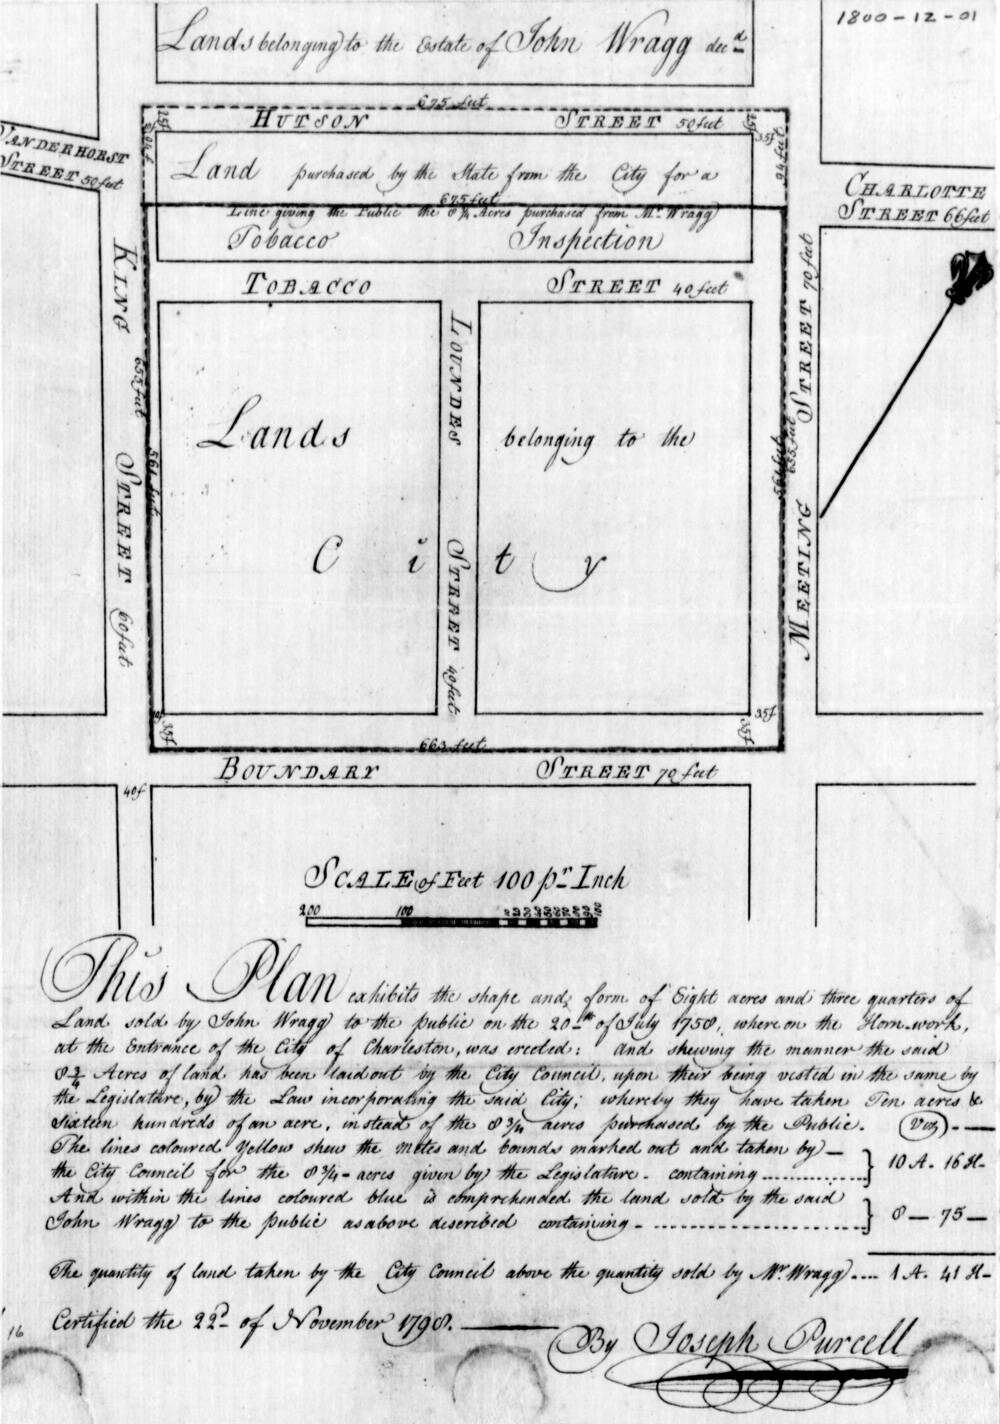 1800-12-01
Lands belonging to the Estate of John Wragg decd
675 feet
HUTSON STREET 50 feet
25f
25f
35f
94 feet
VANDERHORST
STREET 50 feet
Land purchased by the State from the City for a
675 feet
Line giving the Public the 8 3/4 Acres purchased from Mr. Wragg
Tobacco Inspection
CHARLOTTE
STREET 66 feet
TOBACCO STREET 40 feet
KING STREET 60 feet
655 feet
561 feet
LOUNDES STREET 40 feet
MEETING STREET 70 feet
561 feet
655 feet
Lands belonging to the
City
35f
35f
35f
663 feet
BOUNDARY STREET 70 feet
40f
SCALE of Feet 100 pr Inch
200 100
This Plan exhibits the shape and form of Eight acres and three quarters of
Land sold by John Wragg to the public on the 20th of July 1758, whereon the Horn-work,
at the Entrance of the City of Charleston, was erected: and shewing the manner the said
8 3/4 Acres of land has been laid out by the City Council, upon their being vested in the same by
the Legislature, by the Law incorporating the said City; whereby they have taken Ten acres &
Sixteen hundreds of an acre, instead of the 8 3/4 acres purchased by the Public. (Viz)
The lines coloured Yellow shew the metes and bounds marked out and taken by
the City Council for the 8 3/4 acres given by the Legislature containing } 10 A. 16 H
And within the lines coloured blue is comprehended the land sold by the said
John Wragg to the public as above described containing } 8 — 75 —
The quantity of land taken by the City Council above the quantity sold by Mr Wragg .... 1 A. 41 H
Certified the 22d of November 1798.
By Joseph Purcell
16